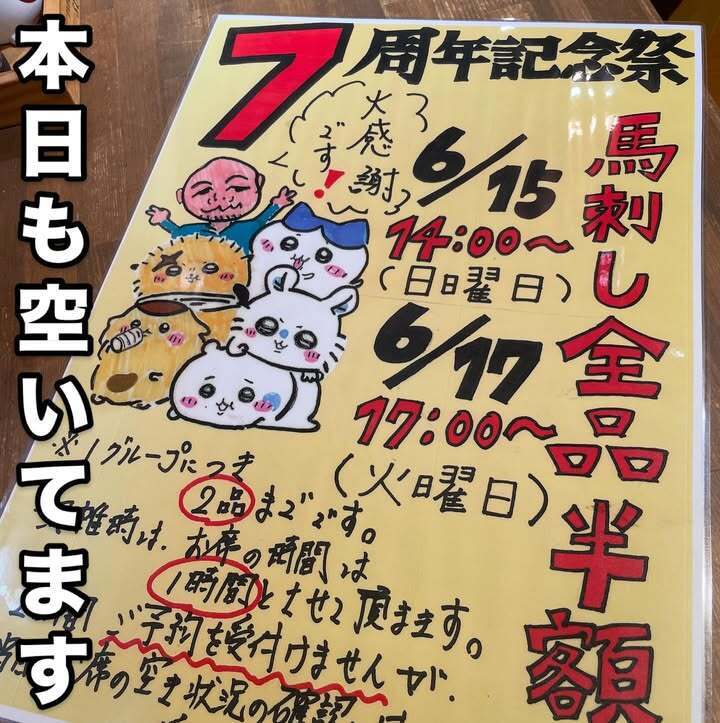 本日も空いてます
7周年記念祭
大感謝です!
6/15
14:00〜
(日曜日)
6/17
17:00〜
(火曜日)
馬刺し全品半額
※1グループにつき
2品までです。
雑時は、お席の時間は
1時間とさせて頂きます。
ご予約を受付けませんが、
席の空き状況の確認は